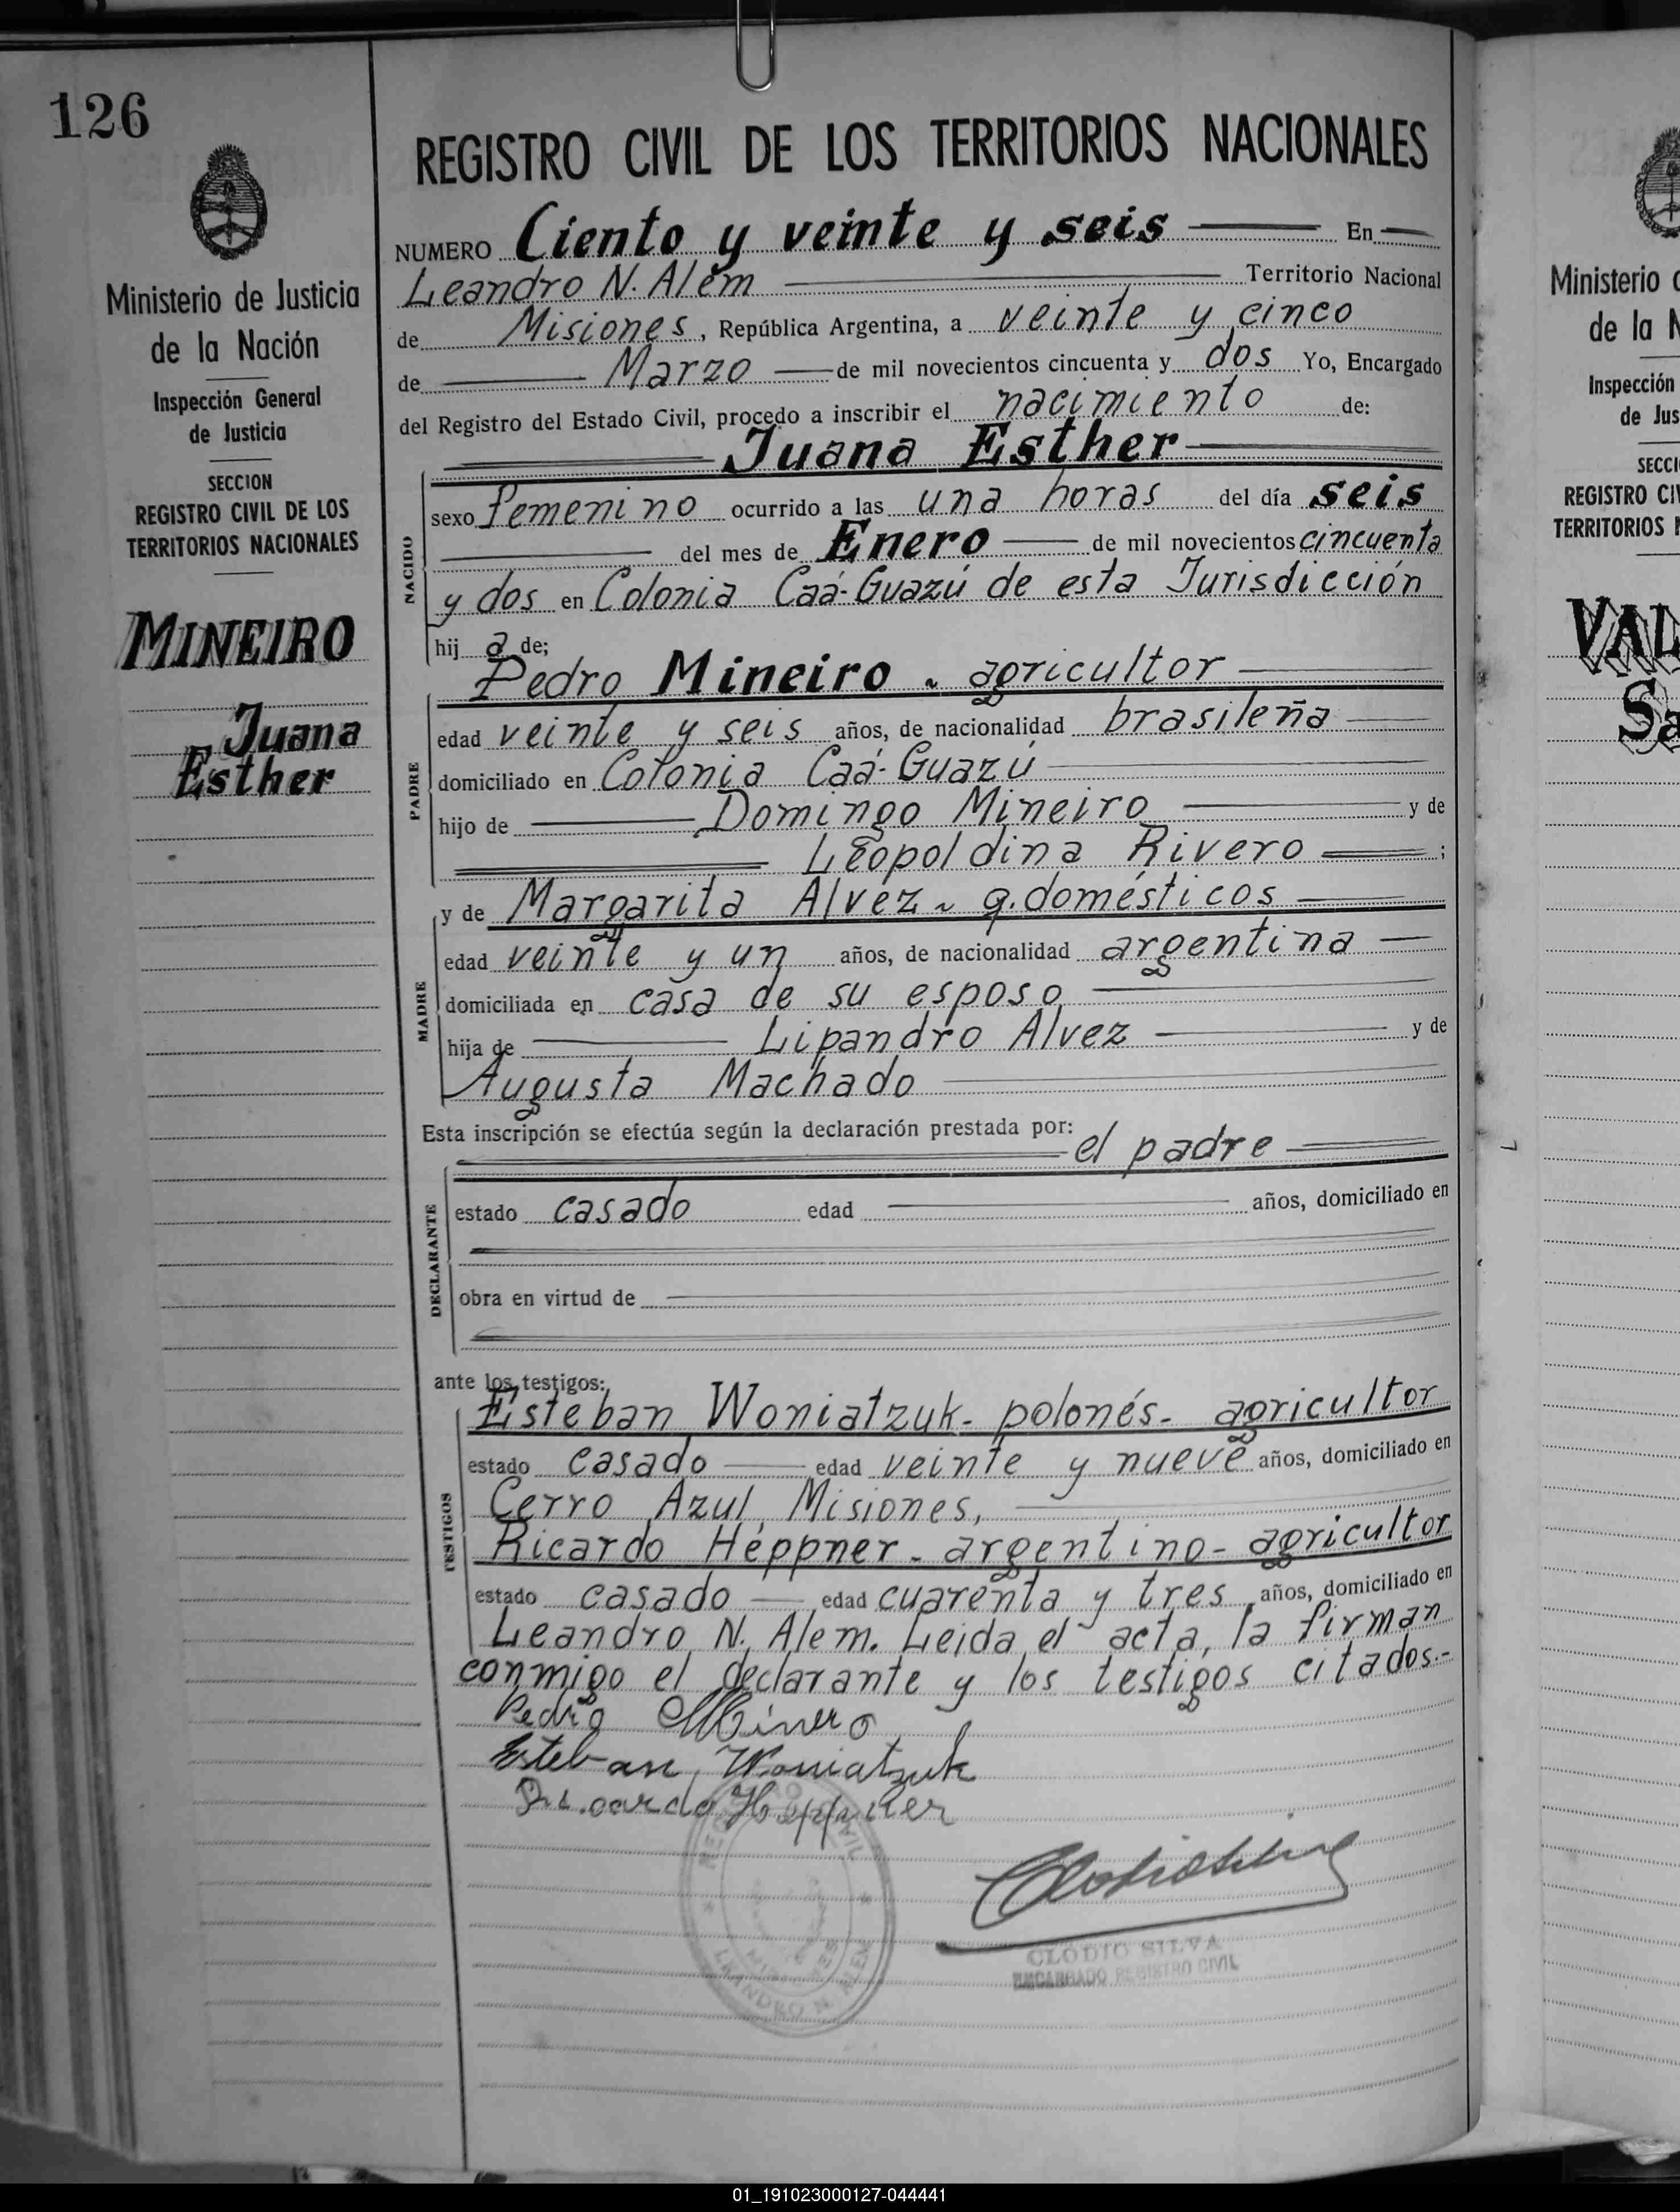 126
Ministerio de Justicia
de la Nación
Inspección General
de Justicia
SECCION
REGISTRO CIVIL DE LOS
TERRITORIOS NACIONALES
MINEIRO
Juana
Esther
REGISTRO CIVIL DE LOS TERRITORIOS NACIONALES
NUMERO Ciento y veinte y seis En
Leandro N. Alem Territorio Nacional
de Misiones, República Argentina, a veinte y cinco
de Marzo de mil novecientos cincuenta y dos Yo, Encargado
del Registro del Estado Civil, procedo a inscribir el nacimiento de:
Juana Esther
NACIDO
sexo femenino ocurrido a las una horas del día seis
del mes de Enero de mil novecientos cincuenta
y dos en Colonia Caá-Guazú de esta Jurisdicción
hij a de;
Pedro Mineiro - agricultor
PADRE
edad veinte y seis años, de nacionalidad brasileña
domiciliado en Colonia Caá-Guazú
hijo de Domingo Mineiro y de
Leopoldina Rivero ;
y de Margarita Alvez - q. domésticos
MADRE
edad veinte y un años, de nacionalidad argentina
domiciliada en casa de su esposo
hija de Lipandro Alvez y de
Augusta Machado
Esta inscripción se efectúa según la declaración prestada por:
el padre
DECLARANTE
estado casado edad años, domiciliado en
obra en virtud de
ante los testigos:
TESTIGOS
Esteban Woniatzuk - polonés - agricultor
estado casado edad veinte y nueve años, domiciliado en
Cerro Azul, Misiones,
Ricardo Héppner - argentino - agricultor
estado casado edad cuarenta y tres años, domiciliado en
Leandro N. Alem. Leida el acta, la firman
conmigo el declarante y los testigos citados.-
Pedro Minero
Esteban Woniatzuk
Ricardo Heppner
REGISTRO CIVIL
MISIONES
LEANDRO N. ALEM
CLODIO SILVA
ENCARGADO REGISTRO CIVIL
Ministerio
de la
Inspección
de Jus
SECCI
REGISTRO CIV
TERRITORIOS
VAL
Sa
01_191023000127-044441